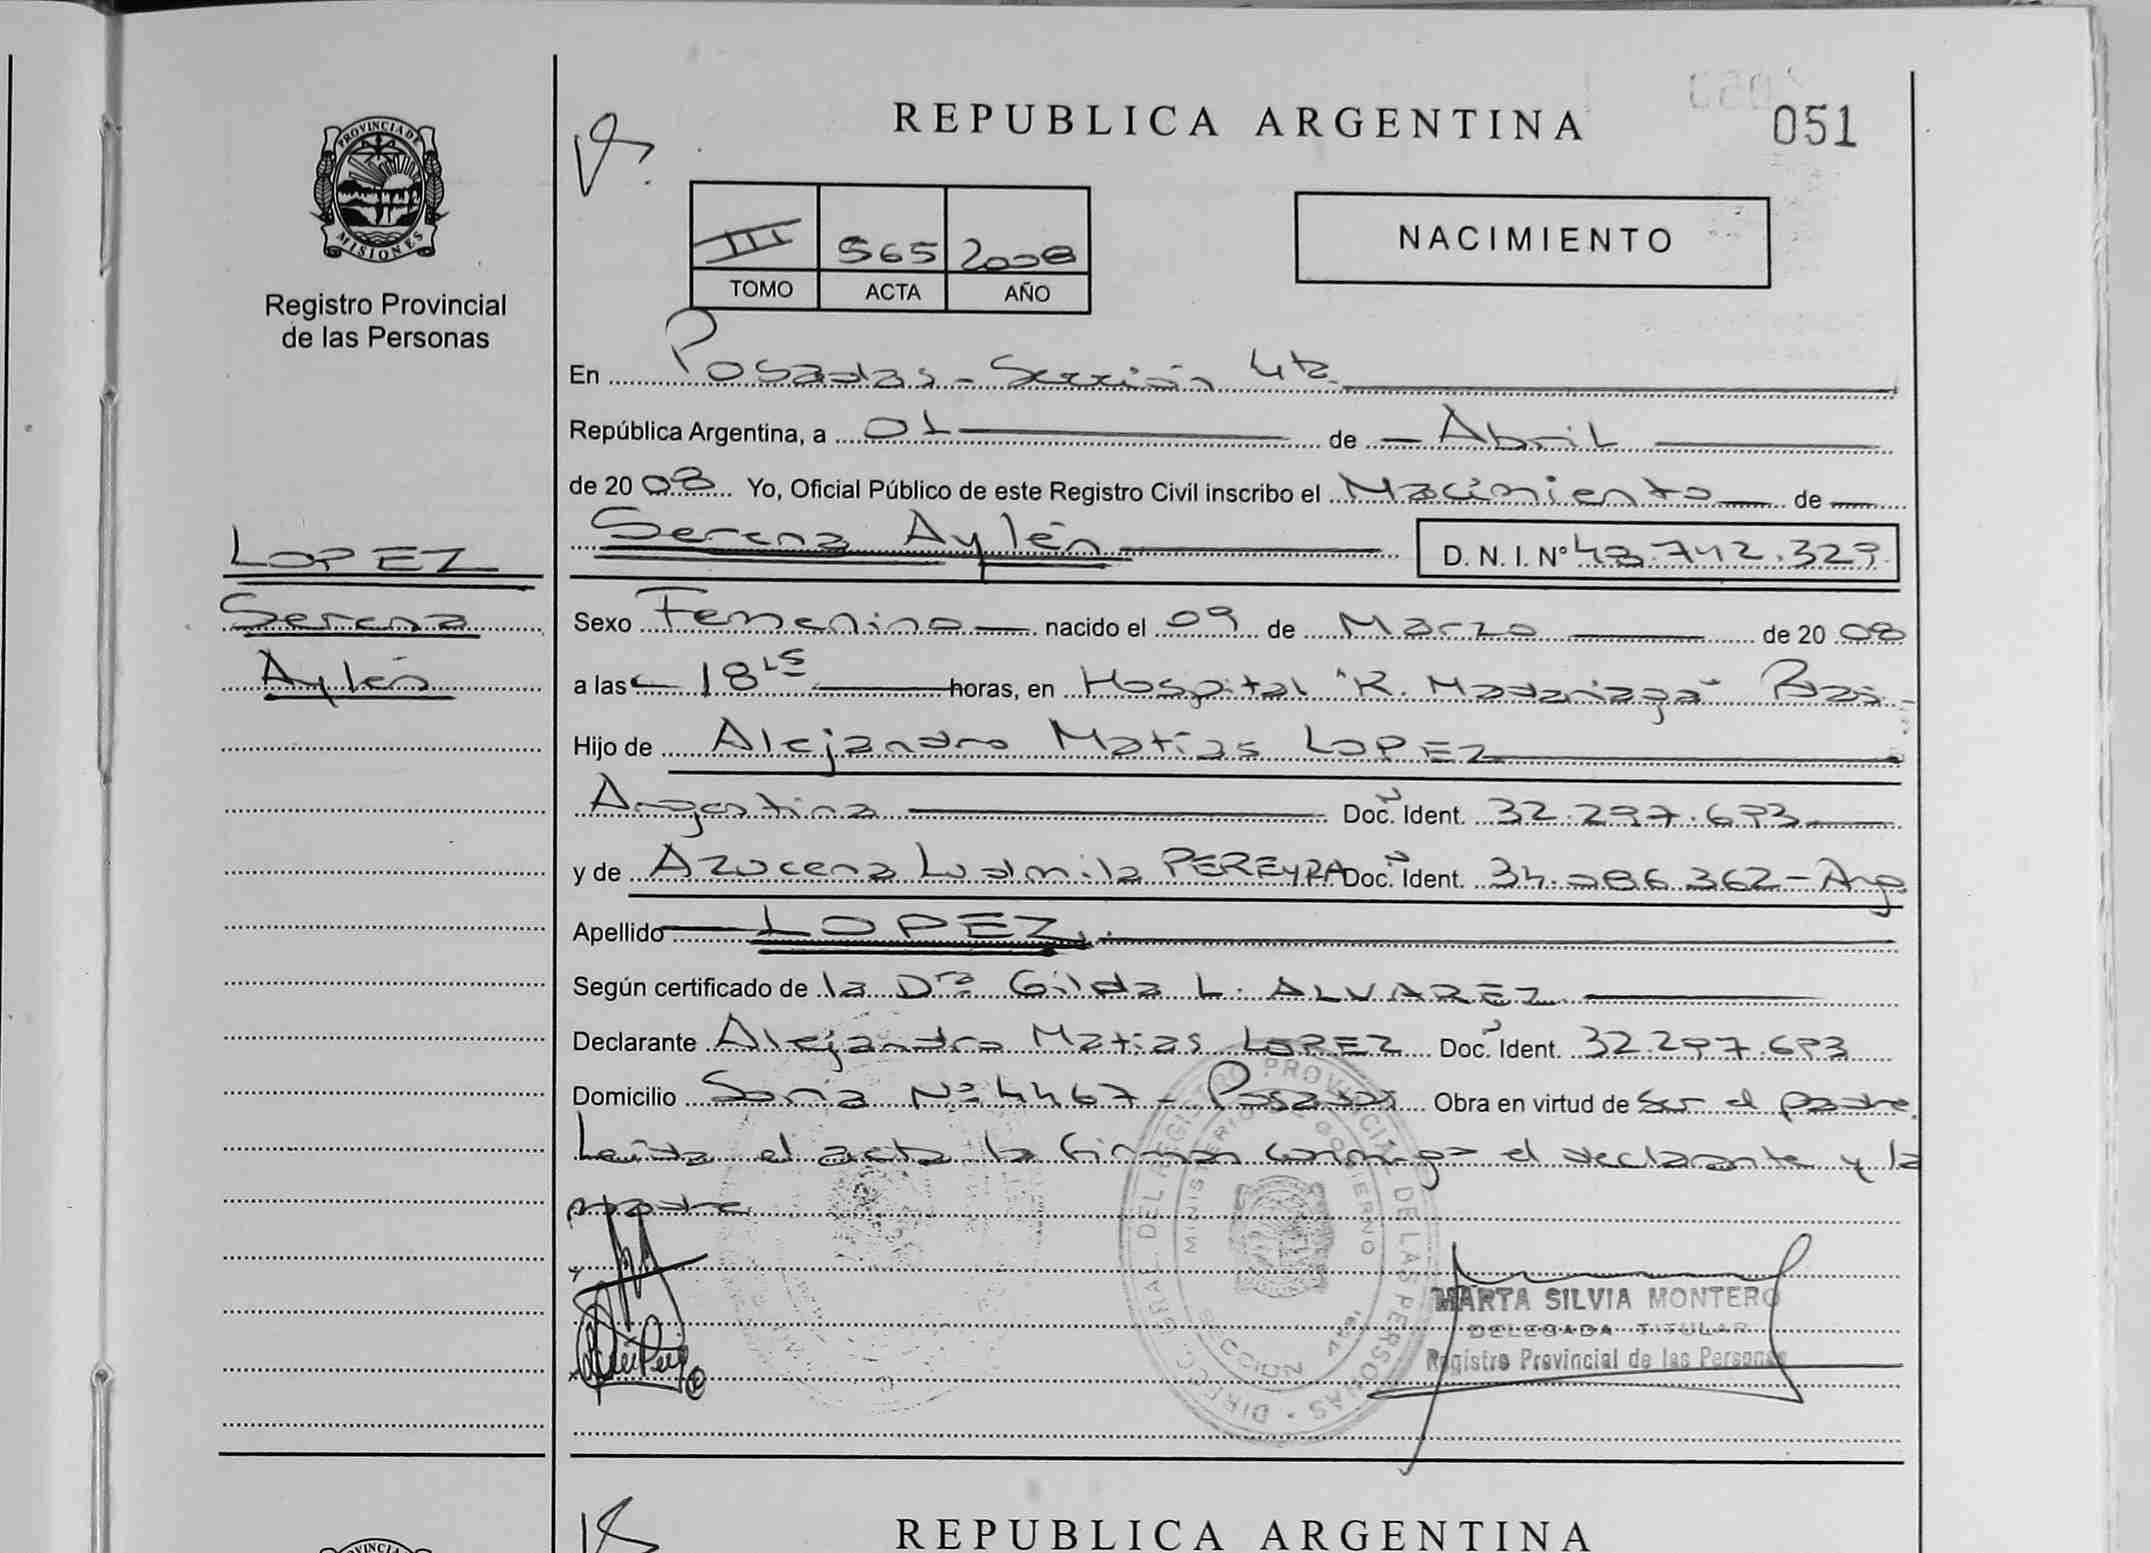 REPUBLICA ARGENTINA
051
PROVINCIA DE
MISIONES
Registro Provincial
de las Personas
III 565 2008
TOMO ACTA AÑO
NACIMIENTO
En Posadas - Sección 4ta.
República Argentina, a 01 de Abril
de 2008 Yo, Oficial Público de este Registro Civil inscribo el Nacimiento de
LOPEZ
Serena
Aylén
Serena Aylén D. N. I. Nº 48.742.329
Sexo Femenino nacido el 09 de Marzo de 2008
a las 18 15 horas, en Hospital "R. Madariaga" Pdas.
Hijo de Alejandro Matías LOPEZ
Argentina Doc. Ident. 32.297.693
y de Azucena Ludmila PEREYRA Doc. Ident. 34.086.362 - Arg
Apellido LOPEZ
Según certificado de la Dra Gilda L. ALVAREZ
Declarante Alejandro Matias LOPEZ Doc. Ident. 32.297.693
Domicilio Soria Nº 4467 - Posadas Obra en virtud de ser el padre.
Leida el acta la firman conmigo el declarante y la
madre
DIRECC GRAL DEL REGISTRO PROVINCIAL DE LAS PERSONAS
MINISTERIO DE GOBIERNO
SECCION 4ta
MARTA SILVIA MONTERO
DELEGADA TITULAR
Registro Provincial de las Personas
REPUBLICA ARGENTINA